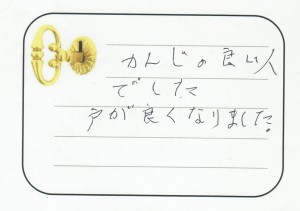 かんじの良い人
でした
戸が良くなりました。